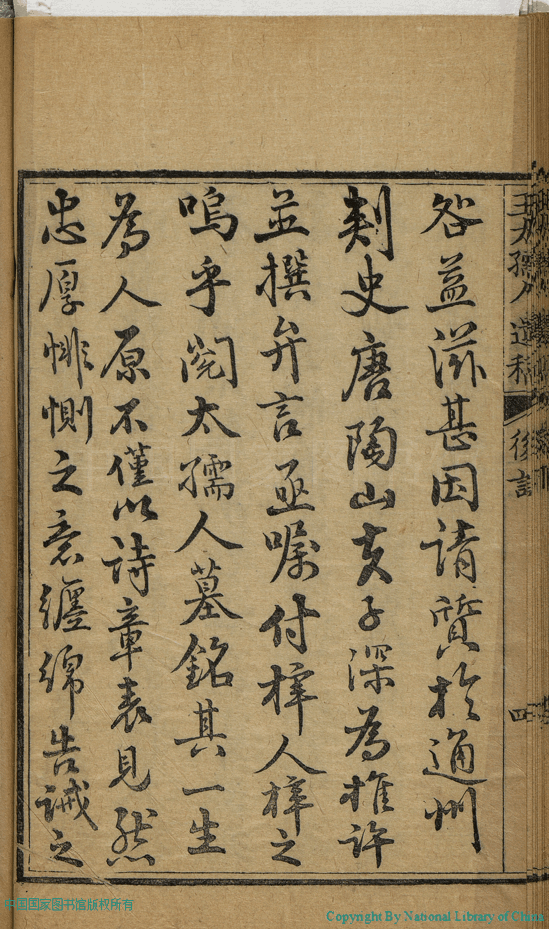 王太孺人遺稿
四
咎益滋甚因請質於通州
刺史唐陶山夫子深為推許
並撰弁言亟囑付梓人梓之
嗚乎閱太孺人墓銘其一生
為人原不僅以詩章表見然
忠厚悱惻之意纏綿告誡之
中国国家图书馆版权所有
Copyright By National Library of China